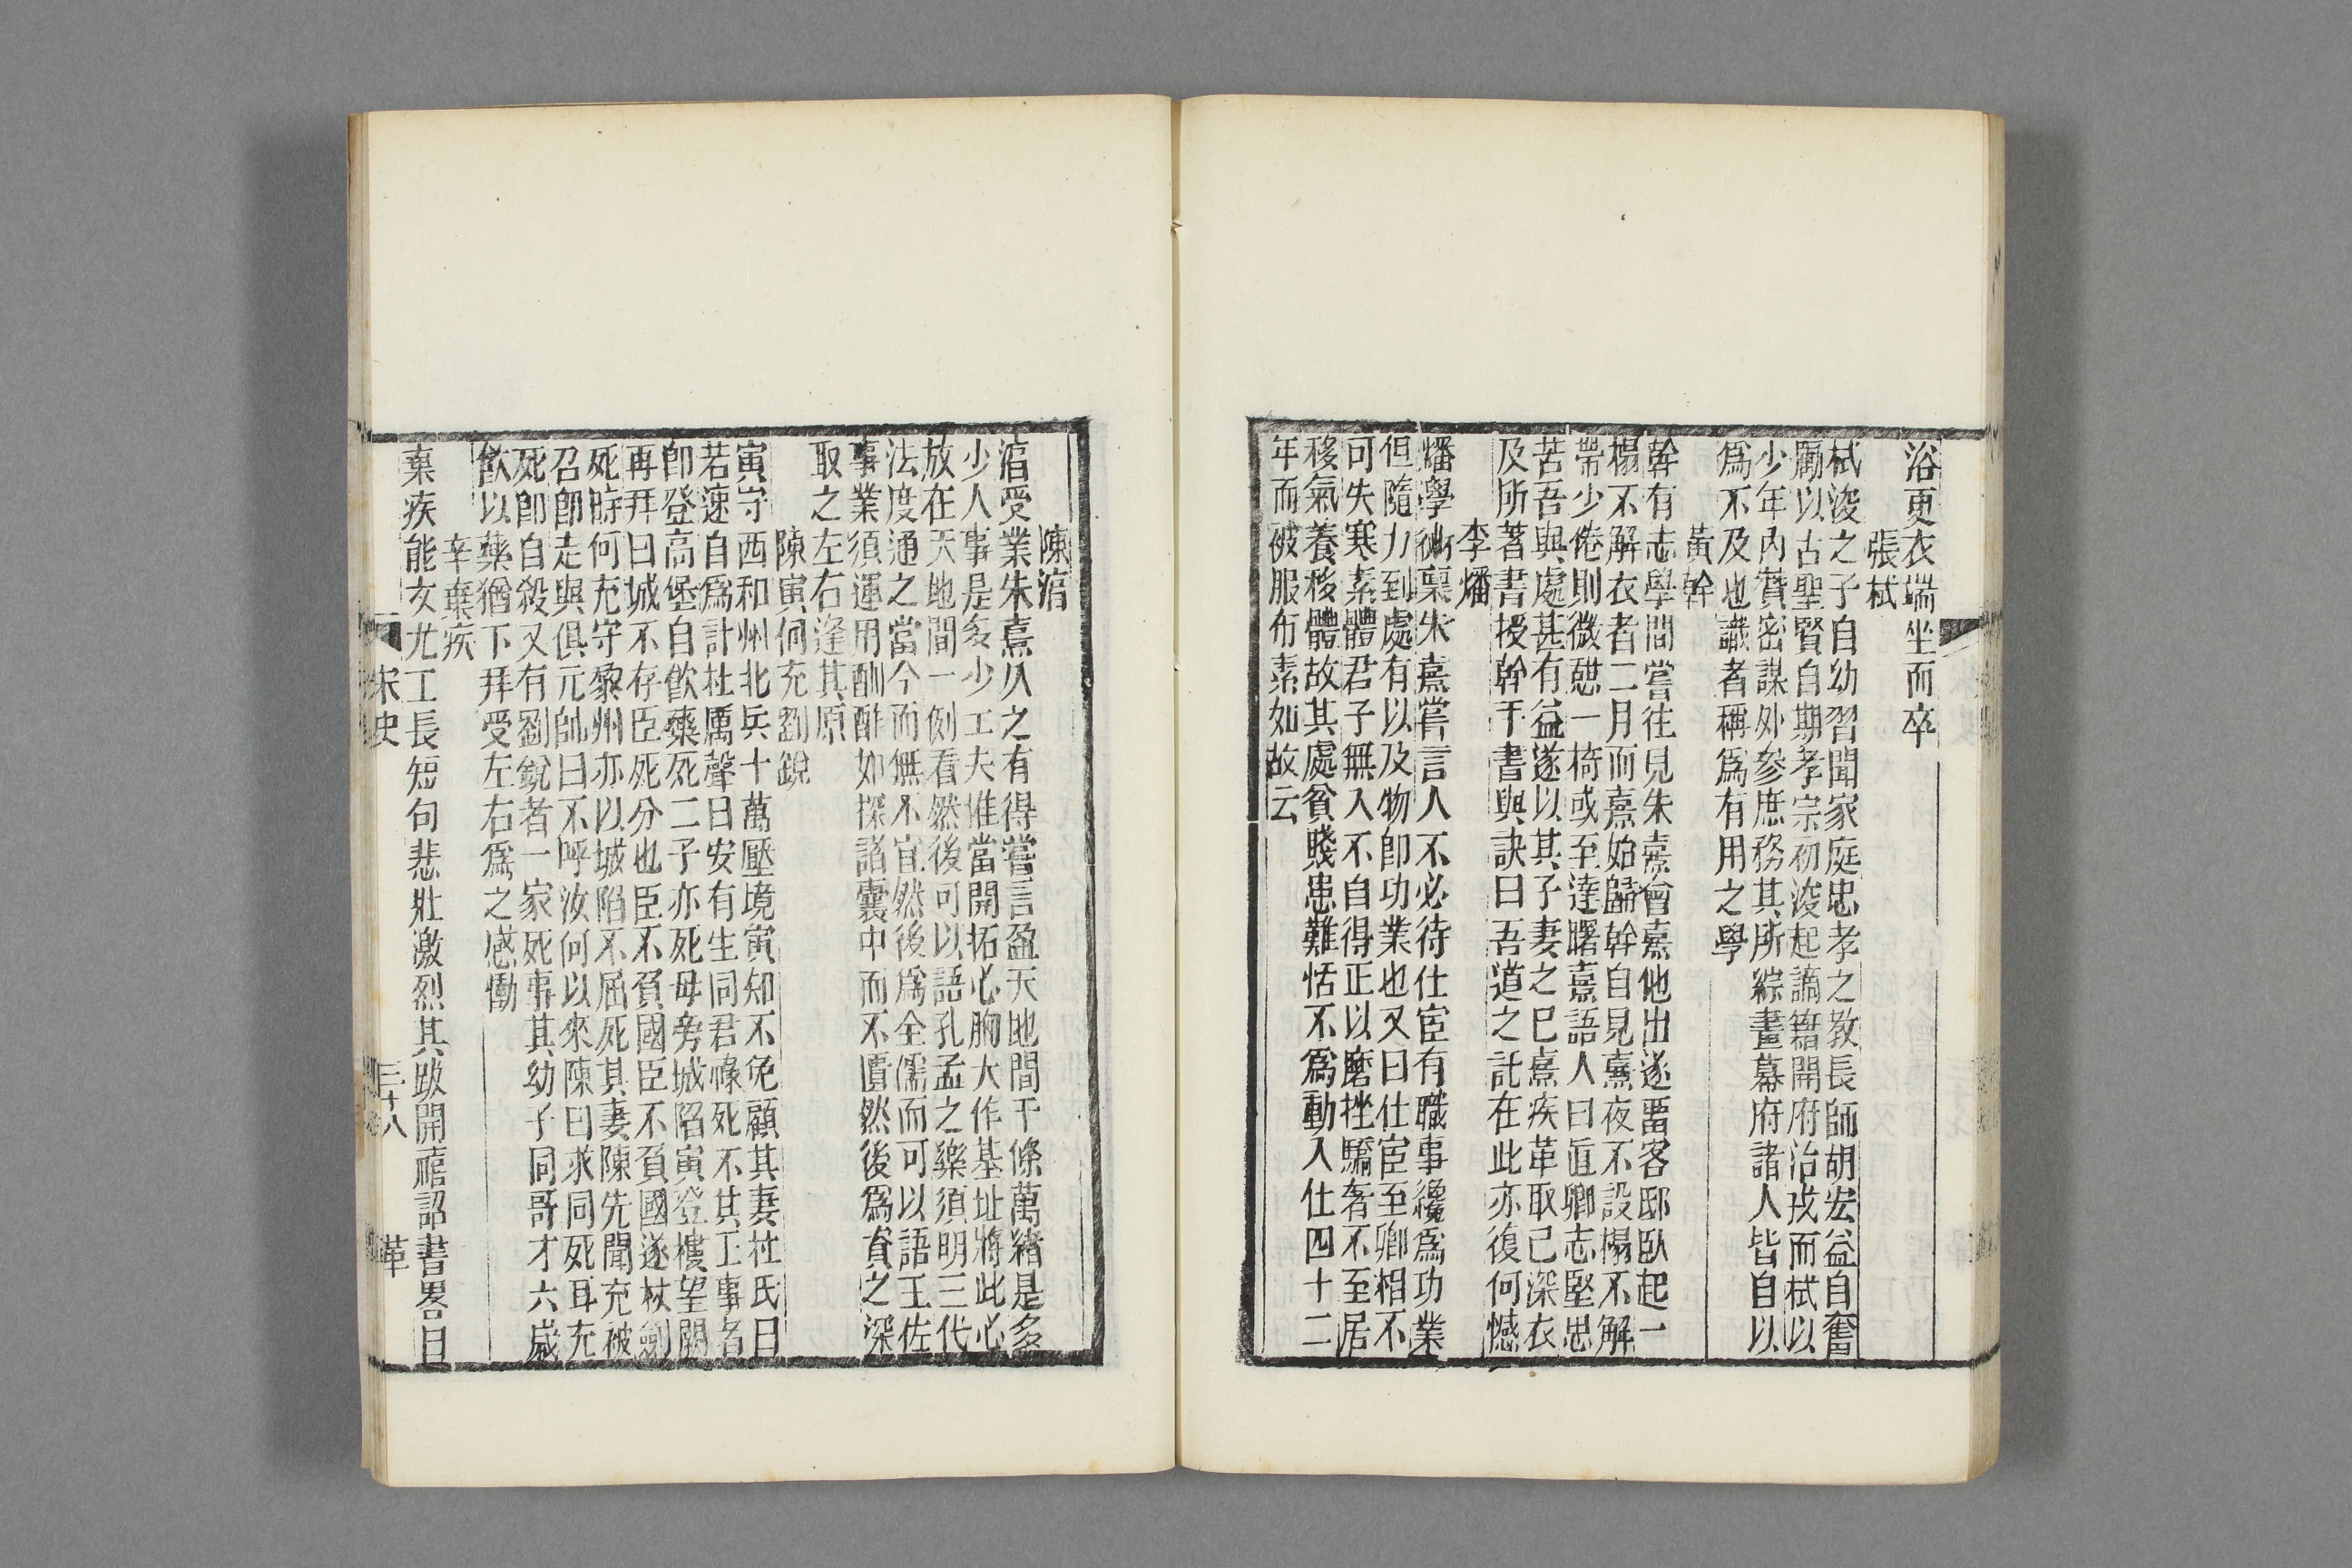 浴更衣端坐而卒
張栻
栻浚之子自幼習聞家庭忠孝之敎長師胡宏益自奮
勵以古聖賢自期孝宗初浚起謫籍開府治戎而栻以
少年內贊密謀外參庶務其所綜畫幕府諸人皆自以
爲不及也識者稱爲有用之學
黃幹
幹有志學問嘗往見朱熹會熹他出遂畱客邸臥起一
榻不解衣者二月而熹始歸幹自見熹夜不設榻不解
帶少倦則微憇一椅或至達曙熹語人曰直卿志堅思
苦吾與處甚有益遂以其子妻之巳熹疾革取己深衣
及所著書授幹手書與訣曰吾道之託在此亦復何憾
李燔
燔學術稟朱熹嘗言人不必待仕宦有職事纔爲功業
但隨力到處有以及物卽功業也又曰仕宦至卿相不
可失寒素體君子無入不自得正以磨挫驕奢不至居
移氣養移體故其處貧賤患難恬不爲動入仕四十二
年而被服布素如故云
陳淯
淯受業朱熹久之有得嘗言盈天地間千條萬緖是多
少人事是多少工夫惟當開拓心胸大作基址將此心
放在天地間一例看然後可以語孔孟之樂須明三代
法度通之當今而無不宜然後爲全儒而可以語王佐
事業須運用酬酢如探諸囊中而不匱然後爲資之深
取之左右逢其原
陳寅何充劉銳
寅守西和州北兵十萬壓境寅知不免顧其妻杜氏曰
若速自爲計杜厲聲曰安有生同君祿死不其王事者
卽登高堡自飮藥死二子亦死母旁城陷寅登樓望闕
再拜曰城不存臣死分也臣不負國臣不負國遂杖劍
死時何充守黎州亦以城陷不屈死其妻陳先聞充被
召卽走與俱元帥曰不呼汝何以來陳曰求同死耳充
死卽自殺又有劉銳者一家死事其幼子同哥才六歲
飮以藥猶下拜受左右爲之感慟
辛棄疾
棄疾能文尤工長短句悲壯激烈其跋開禧詔書畧曰
宋史
三十八
革